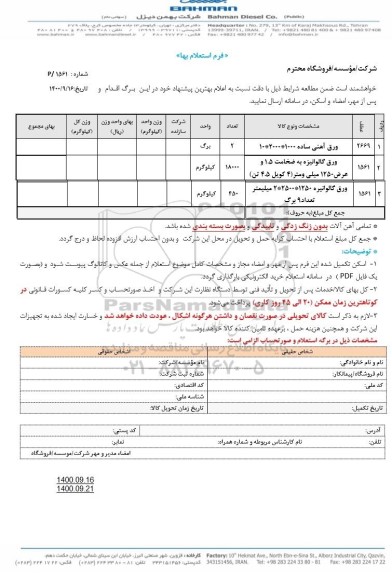 BAHMAN
Bahman Diesel Co.
شرکت بهمن دیزل
«فرم استعلام بها»
شرکت/مؤسسه/فروشگاه محترم
شماره : ۱۵۶۱ /P
خواهشمند است ضمن مطالعه شرایط ذیل با دقت نسبت به اعلام بهترین پیشنهاد خود در این برگ اقدام و تاریخ:۱۴۰۰/۹/۱۶
پس از مهر، امضاء و اسکن، در سامانه ارسال نمایید.
ردیف
مشخصات ونوع کالا
تعداد
واحد
شرکت سازنده
وزن واحد (کیلوگرم)
بهای واحد وزن (ریال)
وزن کل (کیلوگرم)
بهای مجموع
۱ ۲۶۶۹ ورق آهنی ساده ۱۰۰۰*۲۰۰۰*۱۰ ۲ برگ
۲ ۱۵۶۱ ورق گالوانیزه به ضخامت ۱.۵ و عرض۱۲۵۰ میلی ومتر(۴ کویل ۴.۵ تن) ۱۸۰۰۰ کیلوگرم
۳ ۱۵۶۱ ورق گالوانیزه ۱۲۵۰*۲۵۰۰*۲ میلیمتر تعداد۹ برگ ۴۵۰ کیلوگرم
جمع کل مبلغ(به حروف):
* تمامی آهن آلات بدون زنگ زدگی و تابیدگی و بصورت بسته بندی شده باشد.
* جمع کل مبلغ استعلام با احتساب کرایه حمل و تحویل در محل این شرکت و بدون احتساب ارزش افزوده لحاظ و درج گردد.
* توضیحات:
۱- اسکن تکمیل شده این فرم پس از مهر و امضاء مجاز و مشخصات کامل موضوع استعلام از جمله عکس و کاتالوگ پیوست شود و (بصورت
یک فایل PDF ) در سامانه استعلام خرید الکترونیکی بارگذاری گردد.
۲- کل بهای کالا/خدمات پس از تحویل و تأئید فنی توسط دستگاه نظارت این شرکت و اخذ صورتحساب و کسر کلیه کسورات قانونی در
کوتاهترین زمان ممکن (۲۰ الی ۲۵ روز کاری) پرداخت می‌شود.
۳-لازم به ذکر است کالای تحویلی در صورت نقصان و داشتن هرگونه اشکال ، عودت داده خواهد شد و خسارت ایجاد شده به تجهیزات
این شرکت و همچنین هزینه حمل ، برعهده تامین کننده کالا خواهد بود.
مشخصات ذیل در برگه استعلام و صورتحساب الزامی است:
شخص حقیقی
شخص حقوقی
نام و نام خانوادگی:
نام مؤسسه/شرکت:
نام فروشگاه/پیمانکار:
شماره ثبت شرکت:
کد ملی:
کد اقتصادی:
شناسه ملی:
تاریخ تکمیل:
زمان تحویل کالا:
آدرس:
کد پستی:
تلفن:
نام کارشناس مربوطه و شماره همراه:
نمابر:
امضاء مدیر و مهر شرکت/مؤسسه/فروشگاه
1400.09.16
1400.09.21
ParsNamadData